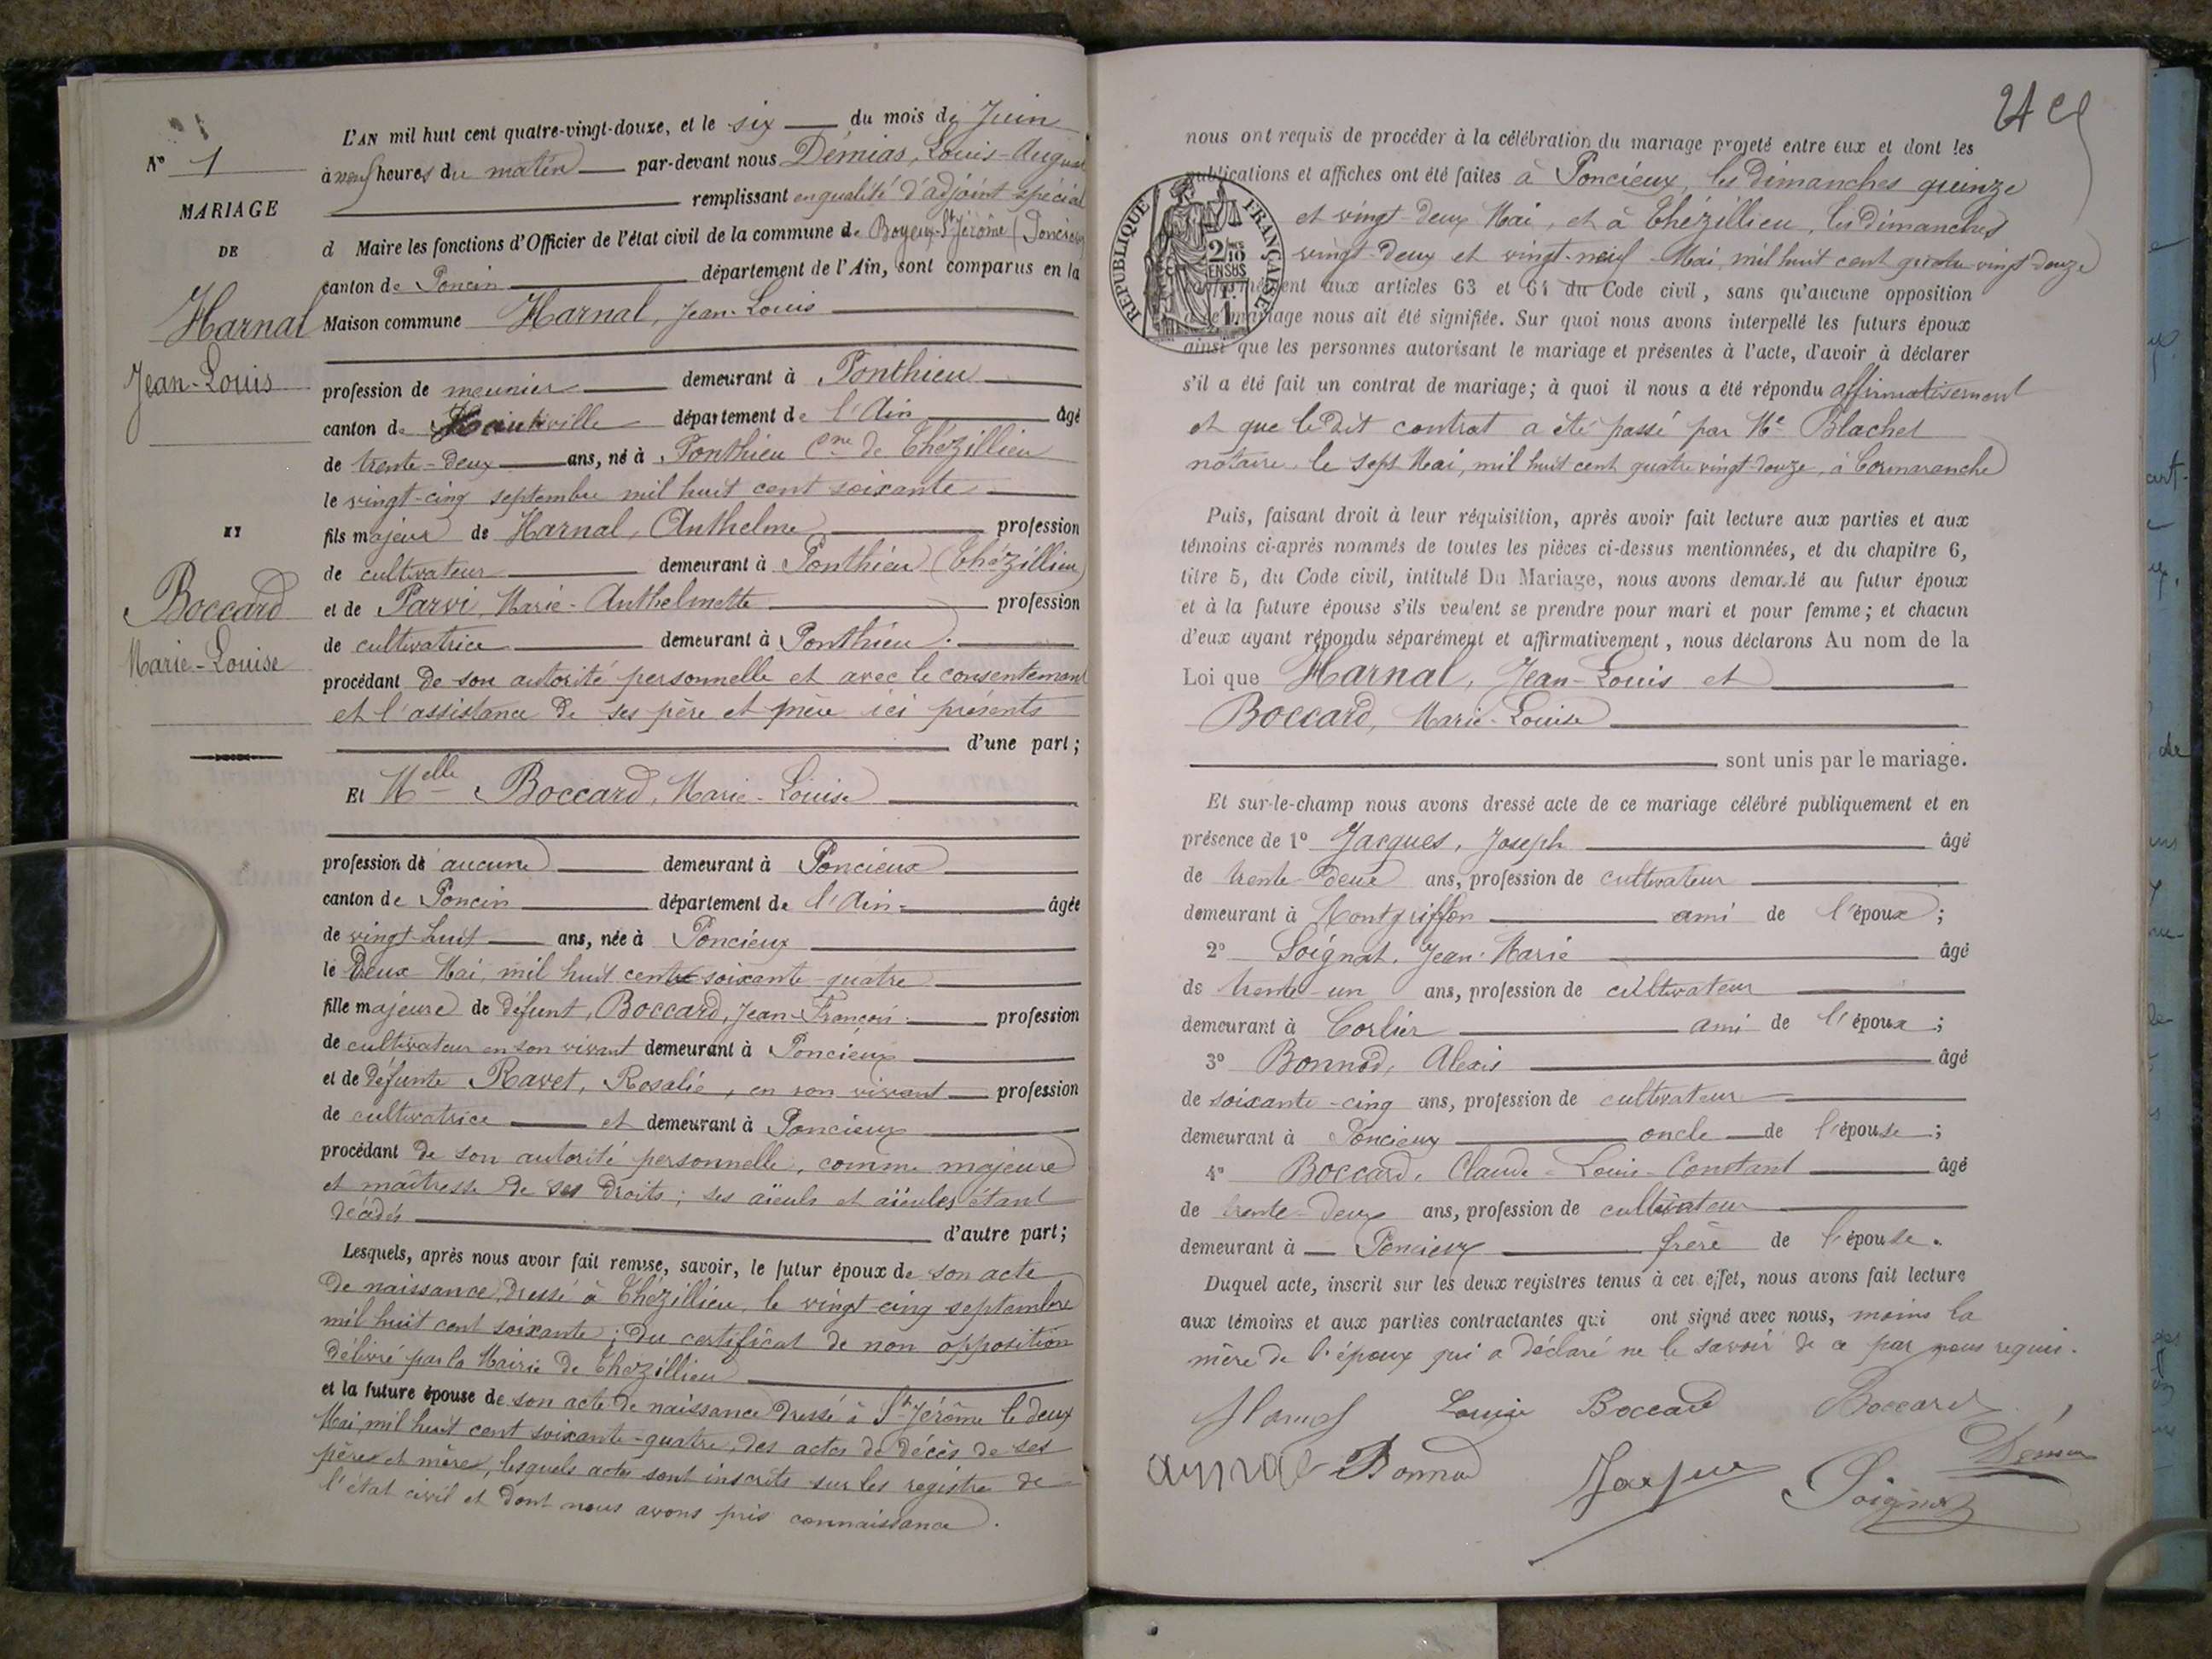 N° 1
MARIAGE
DE
Harnal
Jean-Louis
ET
Boccard
Marie-Louise
L'AN mil huit cent quatre-vingt-douze, et le six du mois de Juin
à neuf heures du matin par-devant nous Démias, Louis-August
remplissant en qualité d'adjoint spécial
d Maire les fonctions d'Officier de l'état civil de la commune de Boyeux-St Jérôme (Poncieux
canton de Poncin département de l'Ain, sont comparus en la
Maison commune Harnal, Jean-Louis
profession de meunier demeurant à Ponthieu
canton de Hauteville département de l'Ain âgé
de trente-deux ans, né à Ponthieu Cne de Thézillieu
le vingt-cinq septembre mil huit cent soixante
fils majeur de Harnal, Anthelme profession
de cultivateur demeurant à Ponthieu (Thézillieu)
et de Parvi, Marie-Anthelmette profession
de cultivatrice demeurant à Ponthieu.
procédant de son autorité personnelle et avec le consentement
et l'assistance de ses père et mère ici présents
d'une part;
Et Melle Boccard, Marie-Louise
profession de aucune demeurant à Poncieux
canton de Poncin département de l'Ain âgée
de vingt-huit ans, née à Poncieux
le deux Mai, mil huit cent soixante-quatre
fille majeure de défunt, Boccard, Jean-François profession
de cultivateur en son vivant demeurant à Poncieux
et de défunte Ravet, Rosalie, en son vivant profession
de cultivatrice et demeurant à Poncieux
procédant de son autorité personnelle, comme majeure
et maîtresse de ses droits; ses aïeuls et aïeules étant
décédés d'autre part;
Lesquels, après nous avoir fait remise, savoir, le futur époux de son acte
de naissance dressé à Thézillieu, le vingt-cinq septembre
mil huit cent soixante; du certificat de non opposition
délivré par la Mairie de Thézillieu
et la future épouse de son acte de naissance dressé à St Jérôme le deux
Mai, mil huit cent soixante-quatre, des actes de décès de ses
père et mère, lesquels actes sont inscrits sur les registre de
l'état civil et dont nous avons pris connaissance.
nous ont requis de procéder à la célébration du mariage projeté entre eux et dont les
publications et affiches ont été faites à Poncieux, les dimanches quinze
et vingt-deux Mai, et à Thézillieu, les dimanches
vingt-deux et vingt-neuf Mai, mil huit cent quatre-vingt-douze
conformément aux articles 63 et 64 du Code civil, sans qu'aucune opposition
mariage nous ait été signifiée. Sur quoi nous avons interpellé les futurs époux
ainsi que les personnes autorisant le mariage et présentes à l'acte, d'avoir à déclarer
s'il a été fait un contrat de mariage; à quoi il nous a été répondu affirmativement
et que le dit contrat a été passé par Me Blachet
notaire, le sept Mai, mil huit cent quatre vingt-douze, à Cormaranche
RÉPUBLIQUE FRANÇAISE
2/10 EN SUS
1 F.
Puis, faisant droit à leur réquisition, après avoir fait lecture aux parties et aux
témoins ci-après nommés de toutes les pièces ci-dessus mentionnées, et du chapitre 6,
titre 5, du Code civil, intitulé Du Mariage, nous avons demandé au futur époux
et à la future épouse s'ils veulent se prendre pour mari et pour femme; et chacun
d'eux ayant répondu séparément et affirmativement, nous déclarons Au nom de la
Loi que Harnal, Jean-Louis et
Boccard, Marie-Louise
sont unis par le mariage.
Et sur-le-champ nous avons dressé acte de ce mariage célébré publiquement et en
présence de 1° Jacques, Joseph âgé
de trente-deux ans, profession de cultivateur
demeurant à Montgriffon ami de l'époux;
2° Soignat, Jean-Marie âgé
de trente-un ans, profession de cultivateur
demeurant à Corlier ami de l'époux;
3° Bonnod, Alexis âgé
de soixante-cinq ans, profession de cultivateur
demeurant à Poncieux oncle de l'épouse;
4° Boccard, Claude-Louis-Constant âgé
de trente-deux ans, profession de cultivateur
demeurant à Poncieux frère de l'épouse.
Duquel acte, inscrit sur les deux registres tenus à cet effet, nous avons fait lecture
aux témoins et aux parties contractantes qui ont signé avec nous, moins la
mère de l'époux qui a déclaré ne le savoir de ce par nous requis.
Harnal Louise Boccard Boccard
Bonnod Jacques Soignat Démias